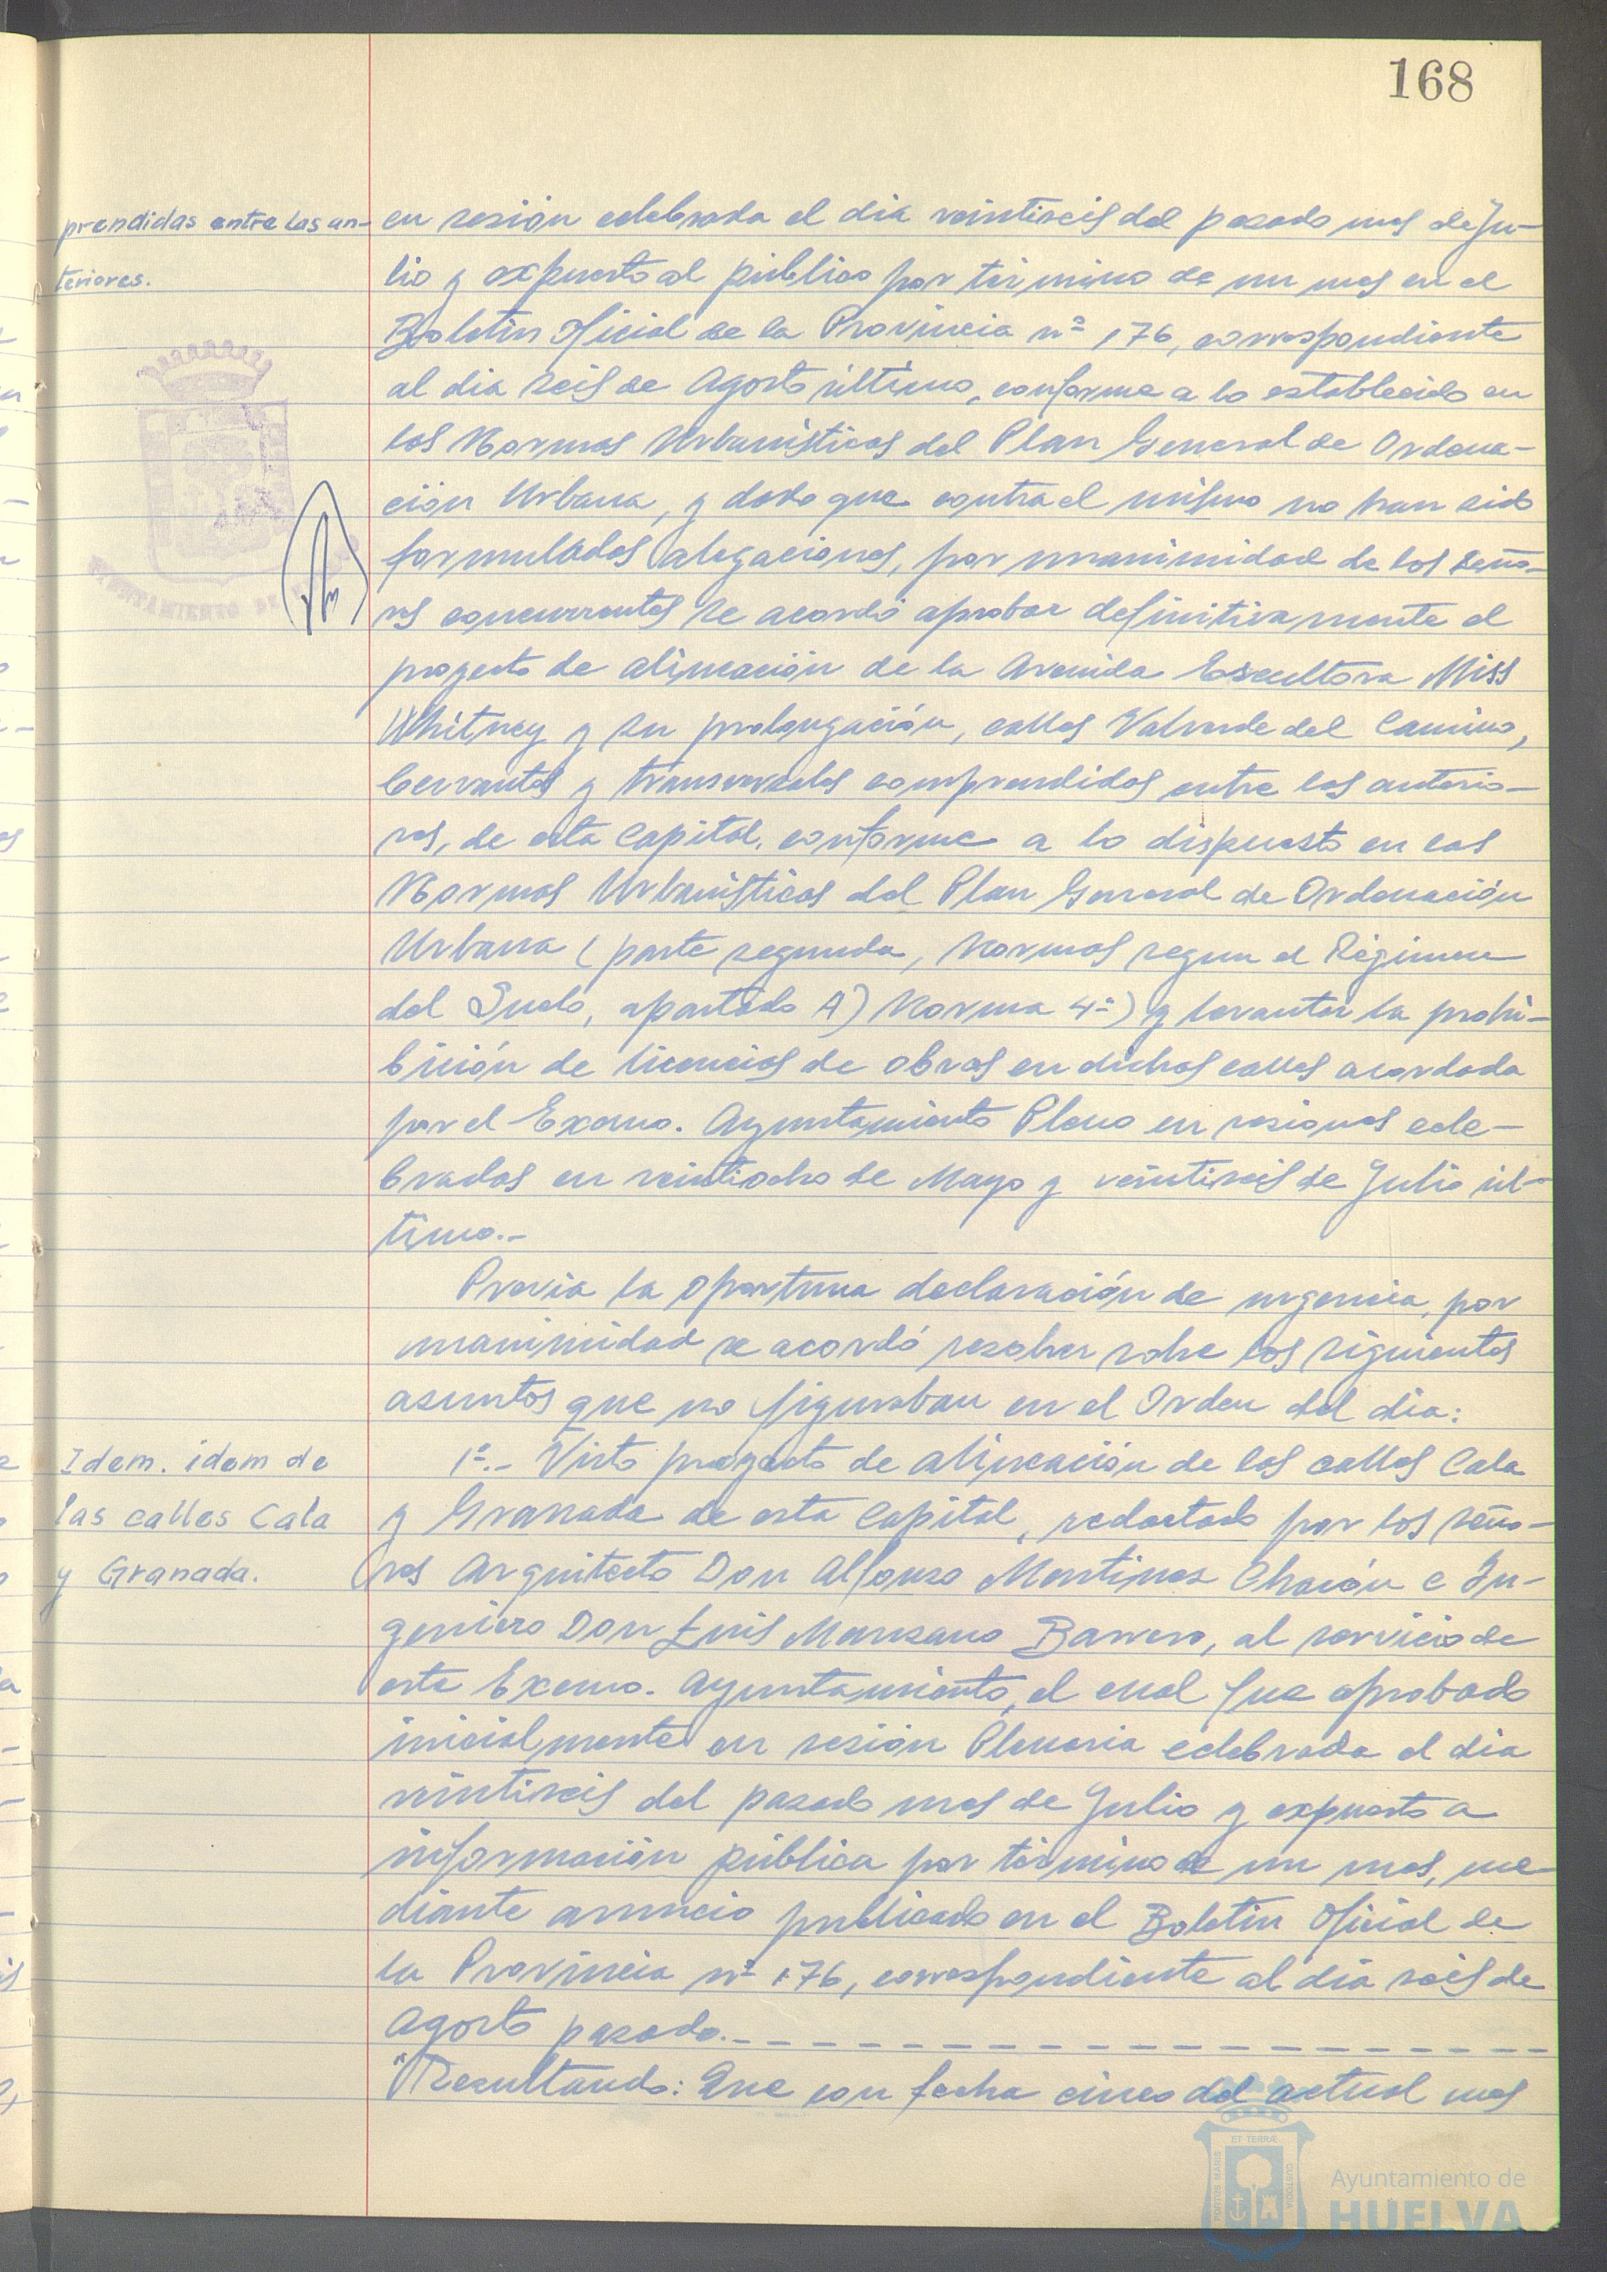 168
prendidas entre las an-
teriores.
en sesión celebrada el dia veintiseis del pasado mes de Ju-
lio y expuesto al público por término de un mes en el
Boletin Oficial de la Provincia nº 176, correspondiente
al dia seis de Agosto último, conforme a lo establecido en
las Normas Urbanísticas del Plan General de Ordena-
ción Urbana, y dado que contra el mismo no han sido
formuladas alegaciones, por unanimidad de los seño-
res concurrentes se acordó aprobar definitivamente el
proyecto de alineación de la Avenida Escultora Miss
Whitney y su prolongación, calles Valverde del Camino,
Cervantes y transversales comprendidas entre las anterio-
res, de esta Capital, conforme a lo dispuesto en las
Normas Urbanísticas del Plan General de Ordenación
Urbana (parte segunda, Normas segun el Régimen
del Suelo, apartado A) Norma 4ª) y levantar la prohi-
bición de licencias de obras en dichas calles acordada
por el Excmo. Ayuntamiento Pleno en sesiones cele-
bradas en veintiocho de Mayo y veintiseis de Julio úl-
timo.-
Previa la oportuna declaración de urgencia, por
unanimidad se acordó resolver sobre los siguientes
asuntos que no figuraban en el Orden del dia:
Idem. idem de
las calles Cala
y Granada.
1º.- Visto proyecto de alineación de las calles Cala
y Granada de esta Capital, redactado por los seño-
res Arquitecto Don Alfonso Martinez Chacón e In-
geniero Don Luis Manzano Barrero, al servicio de
este Excmo. Ayuntamiento, el cual fue aprobado
inicialmente en sesión Plenaria celebrada el dia
veintiseis del pasado mes de Julio y expuesto a
información pública por término de un mes, me-
diante anuncio publicado en el Boletin Oficial de
la Provincia nº 176, correspondiente al dia seis de
Agosto pasado.-
"Resultando: Que con fecha cinco del actual mes
AYUNTAMIENTO DE
Ayuntamiento de
HUELVA